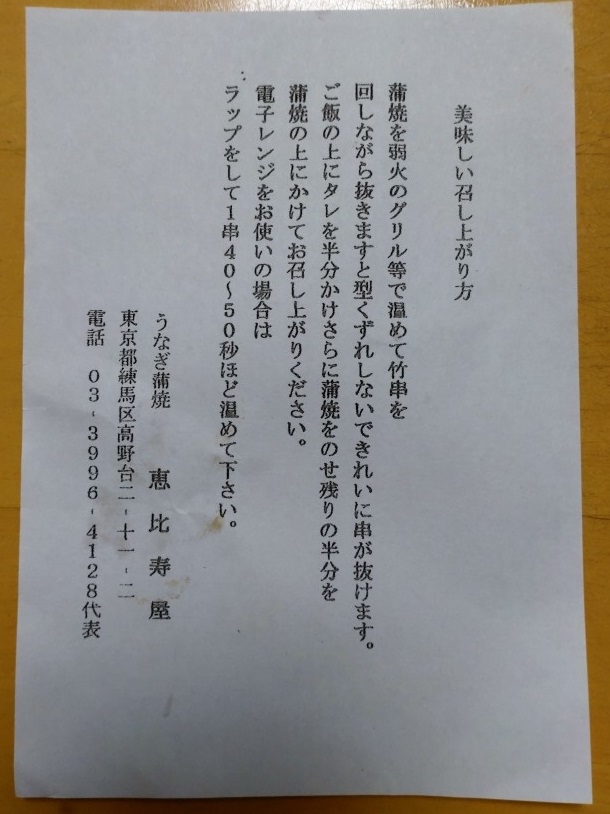 美味しい召し上がり方
蒲焼を弱火のグリル等で温めて竹串を
回しながら抜きますと型くずれしないできれいに串が抜けます。
ご飯の上にタレを半分かけさらに蒲焼をのせ残りの半分を
蒲焼の上にかけてお召し上がりください。
電子レンジをお使いの場合は
ラップをして1串40〜50秒ほど温めて下さい。
うなぎ蒲焼 恵比寿屋
東京都練馬区高野台二-十一-二
電話 03-3996-4128代表